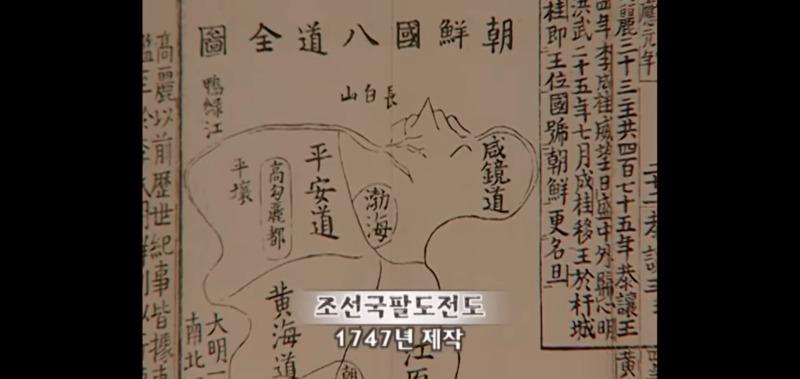 元年
麗二十三主共四百七十五年恭讓王
四年李成桂威望日盛中外歸心明
洪武二十五年七月成桂移王於杆城
桂即王位國號朝鮮更名旦
黃
朝鮮國八道全圖
長白山
咸鏡道
鴨綠江
渤海
平安道
高句麗都
平壤
黃海道
江原
朝
大明一
南北
高麗以前歷世紀事皆據東
조선국팔도전도
1747년 제작